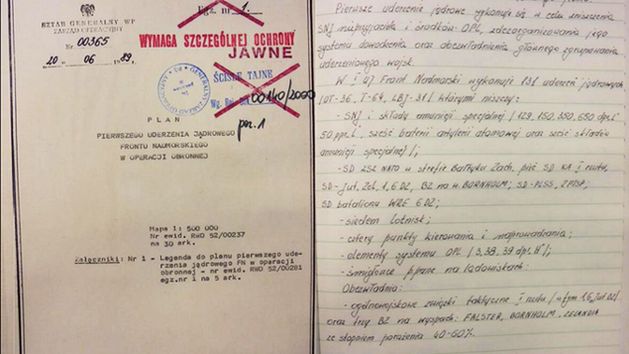 SZTAB GENERALNY WP
ZARZĄD OPERACYJNY
Nr 00365
20 06 1989
Egz. nr 1.
WYMAGA SZCZEGÓLNEJ OCHRONY
JAWNE
ŚCIŚLE TAJNE
00140/2000
poz. 1
PLAN
PIERWSZEGO UDERZENIA JĄDROWEGO
FRONTU NADMORSKIEGO
W OPERACJI OBRONNEJ
Mapa 1: 500 000
Nr ewid. RWO 52/00237
na 30 ark.
Załączniki: Nr 1 - Legenda do planu pierwszego ude-
rzenia jądrowego FN w operacji
obronnej - nr ewid. RWO 52/00281
egz.nr 1 na 5 ark.
Pierwsze uderzenie jądrowe wykonuje się w celu zniszczenia
SNJ nieprzyjaciela i środków OPL, zdezorganizowania jego
systemu dowodzenia oraz obezwładnienia głównego zgrupowania
uderzeniowego wojsk.
W I UJ Front Nadmorski wykonuje 131 uderzeń jądrowych
/OT-36, T-64, LBJ-31/ którymi niszczy:
- SNJ i składy amunicji specjalnej /129, 150, 350, 650 dpl.
50 ppr.l. sześć baterii artylerii atomowej oraz sześć składów
amunicji specjalnej/;
- SD ZSZ NATO w strefie Bałtyku Zach. pięć SD KA i
SD-Jut, Zel, 1, 6 DZ, BZ na w. BORNHOLM; SD-PLSS, ZPTSP;
SD batalionu WRE 6 DZ;
- siedem lotnisk;
- cztery punkty kierowania i naprowadzania;
- elementy systemu OPL /3,38, 39 dpl. H/;
- śmigłowce ppanc na lądowiskach.
Obezwładnia:
- ogólnowojskowe związki taktyczne
oraz trzy BZ na wyspach: FALSTER, BORNHOLM, ZELANDIA
ze stopniem porażenia 40-60%.